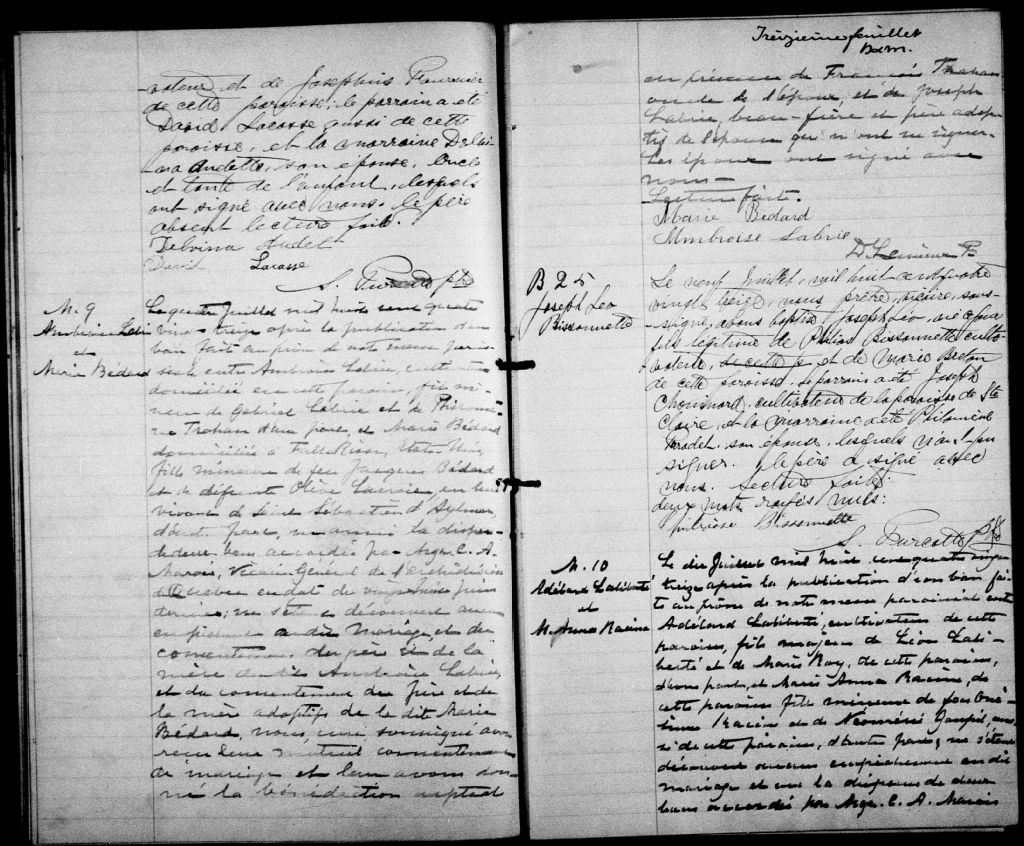 et de Josephine Fournier
de cette paroisse; le parrain a été
David Lacasse aussi de cette
paroisse, et la marraine Delvi-
na Audette, son épouse, oncle
et tante de l'enfant, lesquels
ont signé avec nous. le père
absent lecture faite.
Delvina Audet
David Lacasse
S. Turcotte ptre
M. 9
Ambroise Labrie
et
Marie Bédard
Le quatre Juillet mil huit cent quatre
vingt treize après la publication d'un
ban fait au prone de notre messe parois-
siale entre Ambroise Labrie, cultivateur
domicilié en cette paroisse, fils mi-
neur de Gabriel Labrie et de Philomè-
ne Trahan d'une part, et Marie Bédard
domiciliée à Fall River, Etats-Unis,
fille mineure de feu Bédard
et de défunte Olive Lacroix, en leur
vivant de Saint Sébastien d'Aylmer
d'autre part, vu aussi la dispense
de deux bans accordée par Mgr. C. A.
Marois, Vicaire Général de l'archidiocèse
de Québec en date du vingt Juin
dernier; ne s'étant découvert aucun
empêchement au dit mariage, et du
consentement du père et de la
mère du dit Ambroise Labrie,
et du consentement du père et de
la mère adoptifs de la dite Marie
Bédard, nous, curé soussigné avons
reçu leur mutuel consentement
de mariage et leur avons don-
né la bénédiction nuptiale
Treizième feuillet
en présence de Francois Trahan
oncle de l'époux, et de Joseph
Labrie, beau-frère et père adop-
tif de l'épouse qui n'ont su signer.
Les époux ont signé avec
nous—
Lecture faite.
Marie Bédard
Ambroise Labrie
D. Lemieux P.
B 25
Joseph Léo
Bissonnette
Le neuf Juillet, mil huit cent quatre
vingt treize, nous prêtre, vicaire, sous-
signé, avons baptisé Joseph Léo, né
fils légitime de Bissonnette culti-
vateur, de cette p. et de Marie Breton
de cette paroisse. Le parrain a été Joseph
Chouinard cultivateur de la paroisse de Ste
Claire, et la marraine a été Philomène
son épouse, lesquels n'ont pu
signer. le père a signé avec
nous. Lecture faite.
deux mots rayés nuls:
Bissonnette
S. Turcotte ptre
M. 10
Adélard Laliberté
et
M. Anna Racine
Le dix Juillet mil huit cent quatre vingt
treize après la publication d'un ban fai-
te au prône de notre messe paroissiale entre
Adélard Laliberté, cultivateur de cette
paroisse, fils majeur de Léon Lali-
berté et de Marie Roy, de cette paroisse,
d'une part, et Marie Anna Racine, de
cette paroisse fille mineure de feu Oné-
sime Racine et de Noémie Goupil, aus-
si de cette paroisse, d'autre part; ne s'étant
découvert aucun empêchement au dit
mariage et vu la dispense de deux
bans accordée par Mgr. C. A. Marois